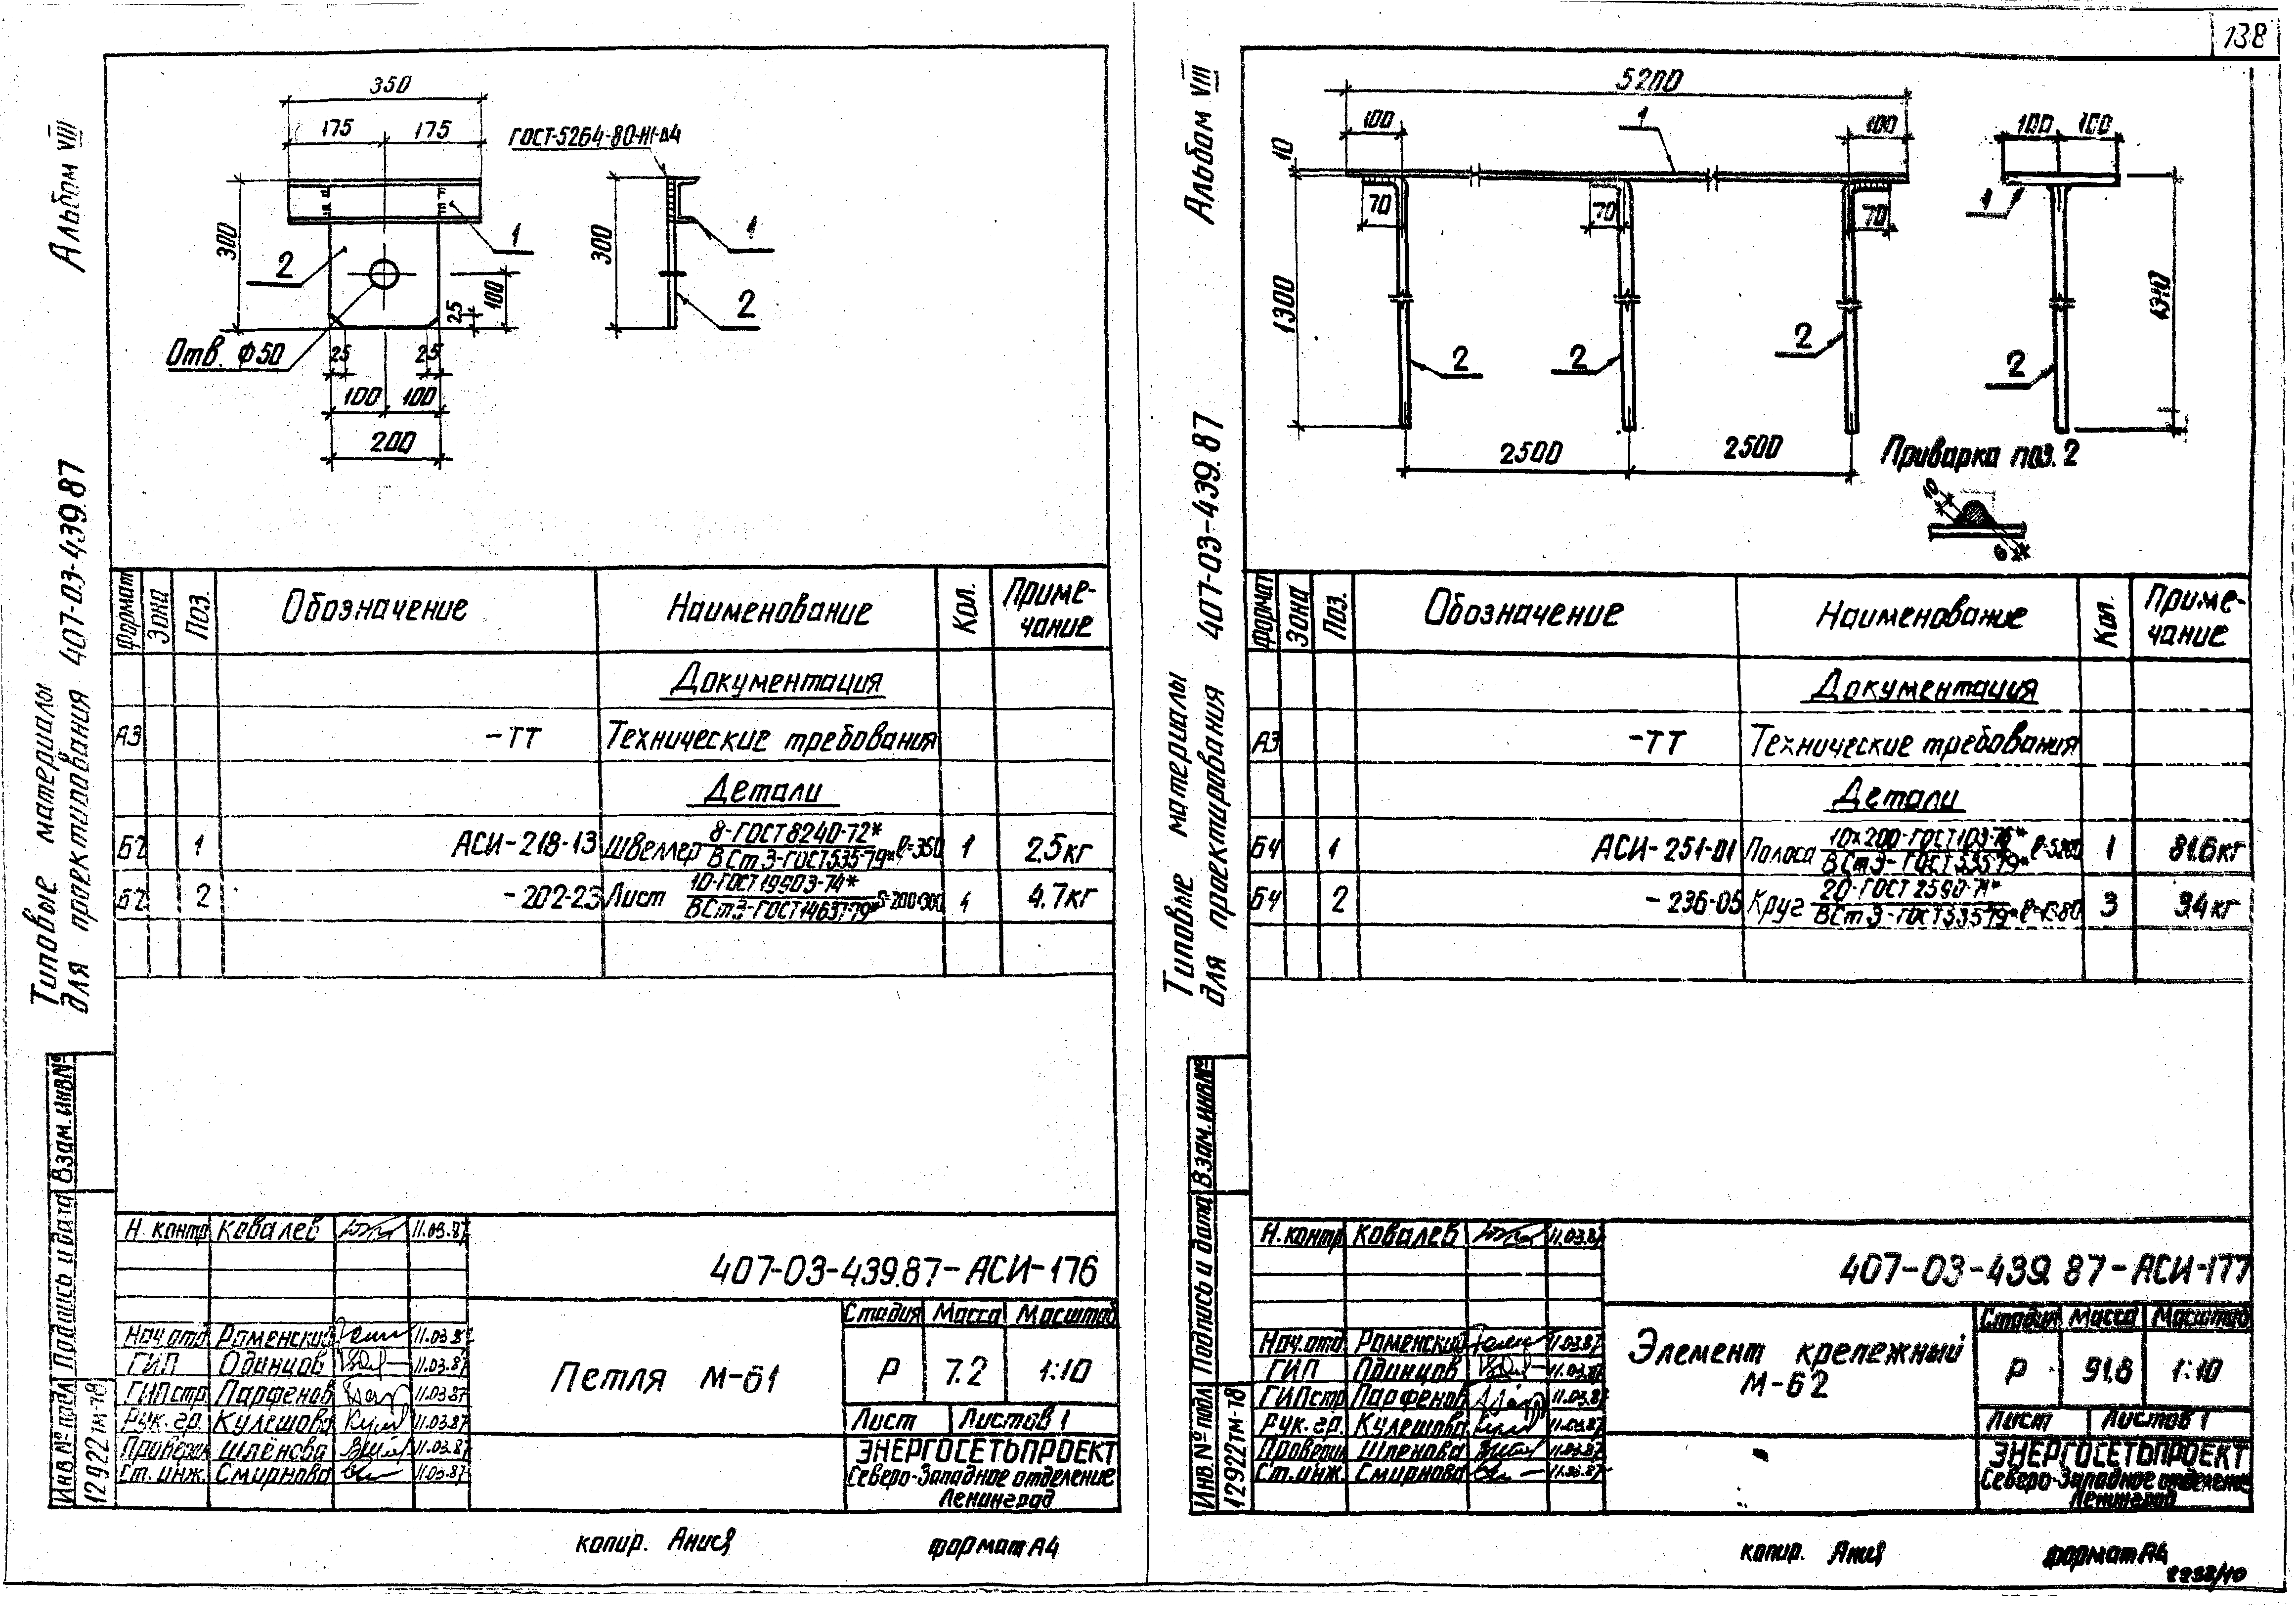 138
Альбом VIII
Типовые материалы
для проектирования 407-03-439.87
350
175 175
ГОСТ-5264-80-Н1-Δ4
300
300
1
2
1
2
100
25
Отв. ф50
25 25
100 100
200
Формат Зона Поз. Обозначение Наименование Кол. Примечание
Документация
А3 -ТТ Технические требования
Детали
1 АСИ-218-13 Швеллер 8-ГОСТ 8240-72* / ВСт3-ГОСТ535-79* ℓ=350 1 2.5кг
2 -202-23 Лист 10-ГОСТ19903-74* / ВСт3-ГОСТ14637-79* S=200×300 1 4.7кг
Взам.инв№
Подпись и дата
Инв.№ подл
12922тм-т8
Н. контр Ковалев 11.03.87
407-03-439.87-АСИ-176
Нач.отд Роменский 11.03.87
ГИП Одинцов 11.03.87
ГИПстр Парфенов 11.03.87
Рук.гр. Кулешова 11.03.87
Проверил Шлёнова 11.03.87
Ст.инж. Смирнова 11.03.87
Петля М-61
Стадия Масса Масштаб
Р 7.2 1:10
Лист Листов 1
ЭНЕРГОСЕТЬПРОЕКТ
Северо-Западное отделение
Ленинград
копир. формат А4
Альбом VIII
Типовые материалы
для проектирования 407-03-439.87
5200
100 1 100
10
70 70 70
1300
2 2 2
2500 2500
100 100
1
1310
2
Приварка поз. 2
10
6
Формат Зона Поз. Обозначение Наименование Кол. Примечание
Документация
А3 -ТТ Технические требования
Детали
Б4 1 АСИ-251-01 Полоса 10×200-ГОСТ103-76* / ВСт3-ГОСТ535-79* ℓ=5200 1 81.6кг
Б4 2 -236-05 Круг 20-ГОСТ 2590-71* / ВСт3-ГОСТ535-79* 3 3.4кг
Взам.инв№
Подпись и дата
Инв.№ подл
12922тм-т8
Н.контр Ковалев 11.03.87
407-03-439.87-АСИ-177
Нач.отд Роменский 11.03.87
ГИП Одинцов 11.03.87
ГИПстр Парфенов 11.03.87
Рук.гр. Кулешова 11.03.87
Проверил Шленова 11.03.87
Ст.инж. Смирнова 11.03.87
Элемент крепежный
М-62
Стадия Масса Масштаб
Р 91.8 1:10
Лист Листов 1
ЭНЕРГОСЕТЬПРОЕКТ
Северо-Западное отделение
Ленинград
копир. формат А4